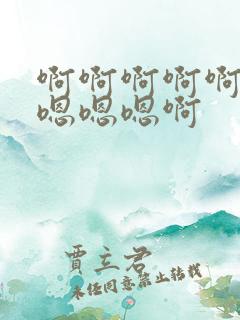 啊啊啊啊啊
嗯嗯嗯啊
贾立君
未经同意禁止转载